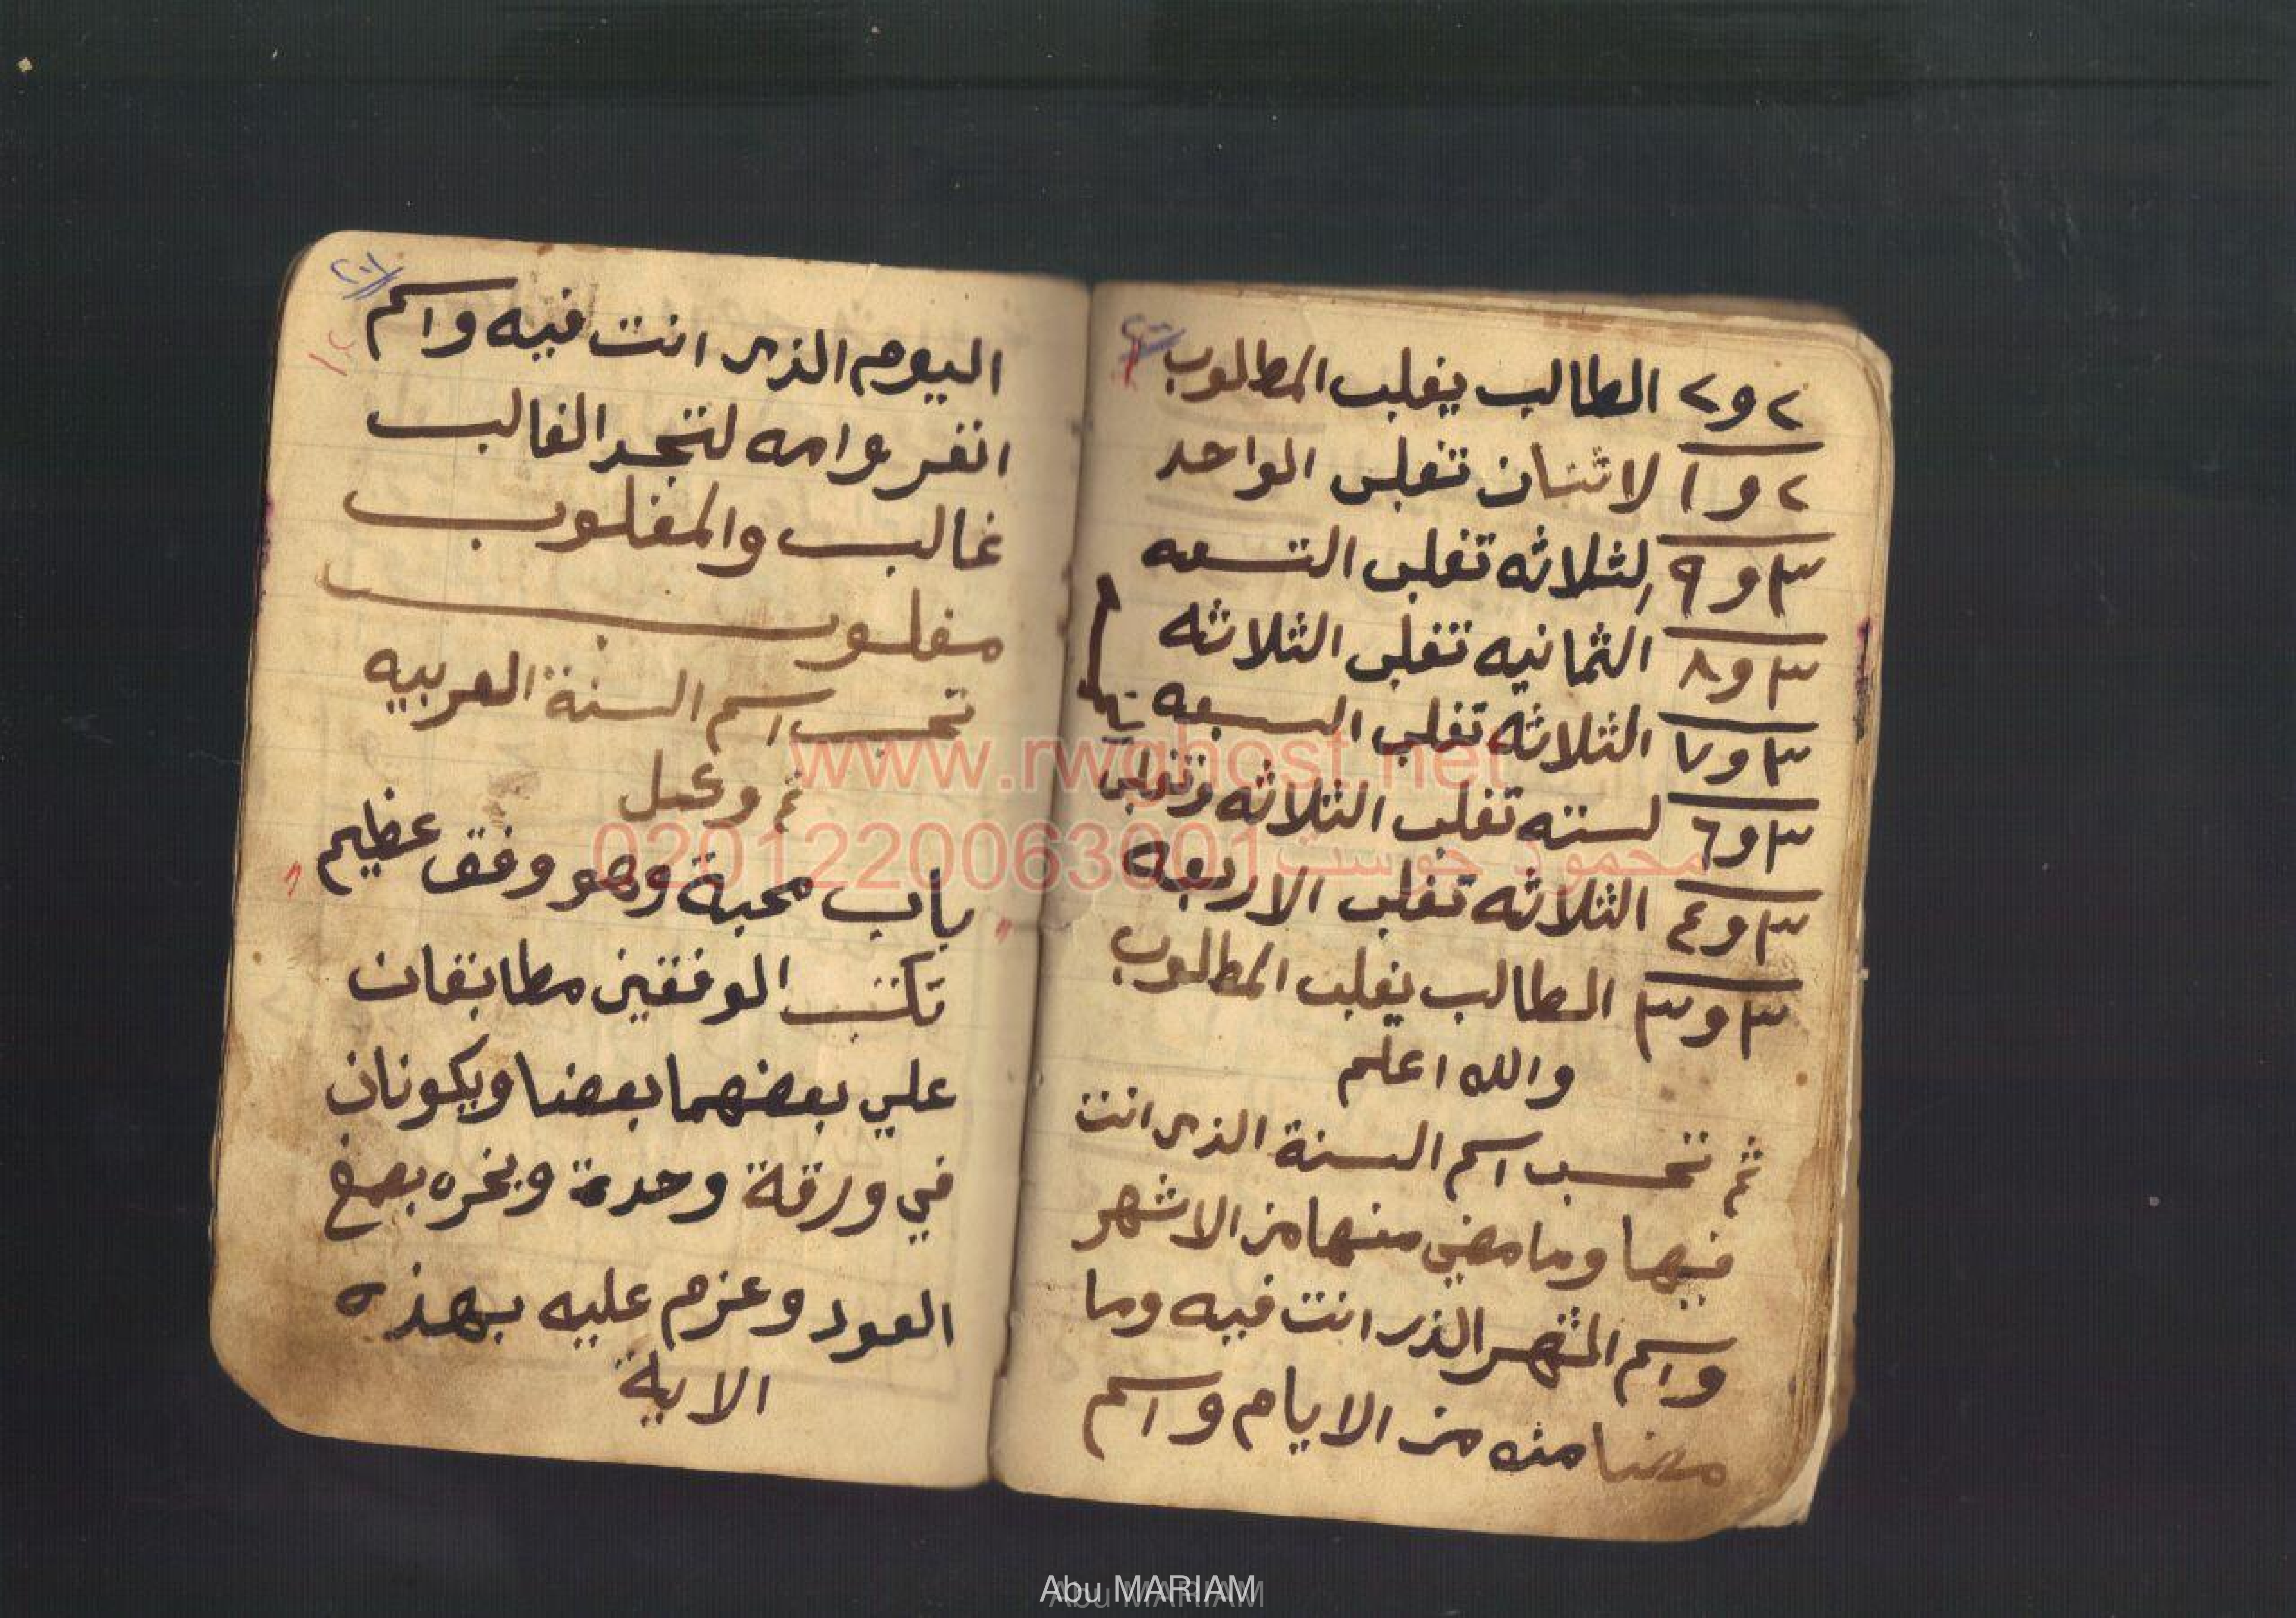 ٢ و ٢ الطالب يغلب المطلوب
٢ و ١ لاثنان تغلب الواحد
٣ و ٩ لثلاثه تغلب التسعه
٣ و ٨ الثمانيه تغلب الثلاثه
٣ و ٧ الثلاثه تغلب السبعه
٣ و ٦ لسته تغلب الثلاثه وتغلب
٣ و ٤ الثلاثه تغلب الاربعه
٣ و ٣ الطالب يغلب المطلوب
والله اعلم
ثم تحسب اسم السنة الذى انت
فيها وما مضي منها من الاشهر
واسم الشهر الذى انت فيه وما
مضا منه من الايام واسم
٢٠١
اليوم الذى انت فيه واسم
وامه لتجد الغالب
غالب والمغلوب
مغلوب
تحسب اسم السنة العربيه
ثم وكمل
باب محبة وهو وفق عظيم
تكتب الوفقين مطابقان
علي بعضهما بعضا ويكونان
في ورقة وحدة وبخره بصمغ
العود وعزم عليه بهذه
الاية
www.rwghost.net
محمود جوست 0201220063001
Abu MARIAM